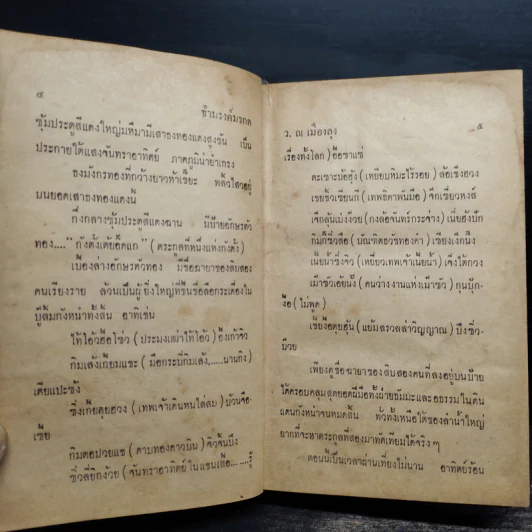 ๔
ข้ามรงค์มรกต
ซุ้มประตูสีแดงใหญ่มหึมามีเสาธงทองแดงสูงชัน เป็น
ประกายใต้แสงจันทราอาทิตย์ ภาคภูมิน่ายำเกรง
ธงมังกรทองที่กว้างยาวห้าเชี้ยะ พลิ้วไสวอยู่
บนยอดเสาธงทองแดงนั้
กึ่งกลางซุ้มประตูสีแดงฉาน มีป้ายอักษรตัว
ทอง....“ กังตั้งเต้ยอี้ดแก ” (ตระกูลที่หนึ่งแห่งกังตั้ง)
เบื้องล่างอักษรตัวทอง มีชื่อฉายาของสิบสอง
คนเรียงราย ล้วนเป็นผู้ยิ่งใหญ่ที่ขึ้นชื่อลือกระเดื่องใน
บู๊ลิ้มกังหนำทั้งสิ้น อาทิเช่น
ไท้โอ้วฮือไซ่ว (ประมงเฒ่าไท้โอ้ว) อึ้งเก้าจิว
กิมเล้งเกี่ยมแชะ (มือกระบี่กิมเล้ง,.....นานกิง)
เตียแปะซ้ง
ซึ่งเกี้ยคุยฮวง (เทพเจ้าเดินหนไล่ลม) บ้วนจือ
เชี้ย
กิมตอปวยแช (ดาบทองดาวบิน) จิวจิ้นบึง
ซิ่วลี่ยิกง้วย (จันทราอาทิตย์ในแขนเสื้อ.....รู้
ว. ณ เมืองลุง
๕
เรื่องทั้งโลก) อือซาแซ่
ตะเซาะบ้ออุ้ง (เหยียบหิมะไร้รอย) ล้อเซียงฮวง
เซยชั่วเซียนกี (เทพธิดาพันมือ) จึกเซี่ยวหงส์
เจ็กลุ้นเม้งง้วย (กงล้อจันทร์กระจ่าง) เนี่ยฮงปัก
กิมกี่ซิ่วสือ (บัณฑิตธวัชทองคำ) เซียงเง็กนึ้ง
เนี่ยน้ำซิ้งจิว (เหยี่ยวเทพเจ้าเนี่ยน้ำ) เจ็งใต้กวง
เมาซัวเอ้ยนั้ง (คนว่างงานแห่งเมาซัว) กุนบุ้ก-
งื้อ (ไม่พูด)
เซียงฮุ้นคุยฮุ้น (แย้มสรวลล่าวิญญาณ) บึงซิ่ว-
ป้วย
เพียงดูชื่อฉายาของสิบสองคนที่ลงอยู่บนป้าย
ได้ครอบคลุมสุดยอดฝีมือทั้งฝ่ายธัมมะและอธรรมในดิน
แดนกังหนำจนหมดสิ้น ทั่วทั้งเหนือใต้ของลำน้ำใหญ่
ยากที่จะหาตระกูลที่สองมาทัดเทียมได้จริงๆ
ตอนนี้เป็นเวลาผ่านเที่ยงไม่นาน อาทิตย์ร้อน